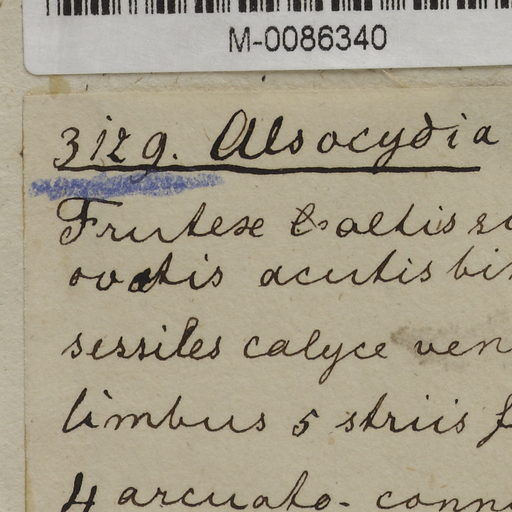 M-0086340
3129. Alsocydia
Frutex
ovatis acutis
sessiles calyce
limbus 5 striis
4 arcuato-